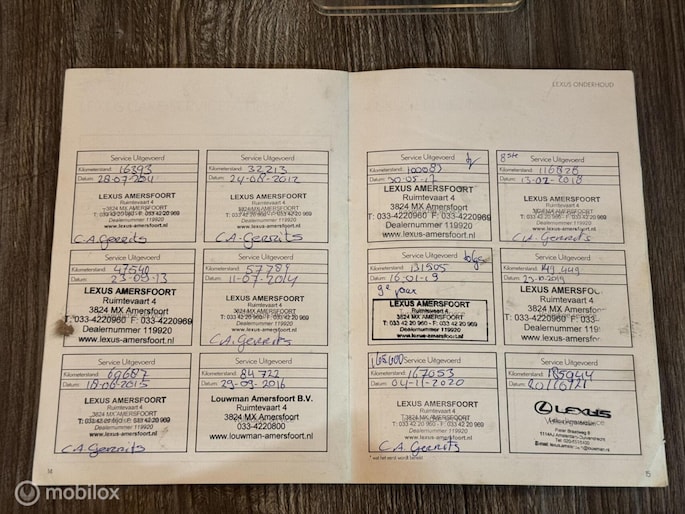 LEXUS ONDERHOUD
Service Uitgevoerd
Kilometerstand: 16393
Datum: 28-07-2011
LEXUS AMERSFOORT
Ruimtevaart 4
3824 MX AMERSFOORT
T: 033 42 20 960 - F: 033 42 20 969
Dealernummer 119920
www.lexus-amersfoort.nl
C.A. Gerrits
Service Uitgevoerd
Kilometerstand: 32213
Datum: 24-08-2012
LEXUS AMERSFOORT
Ruimtevaart 4
3824 MX AMERSFOORT
T: 033 42 20 960 - F: 033 42 20 969
Dealernummer 119920
www.lexus-amersfoort.nl
C.A. Gerrits
Service Uitgevoerd
Kilometerstand: 47540
Datum: 23-09-13
LEXUS AMERSFOORT
Ruimtevaart 4
3824 MX Amersfoort
T: 033-4220960 F: 033-4220969
Dealernummer 119920
www.lexus-amersfoort.nl
Service Uitgevoerd
Kilometerstand: 57789
Datum: 11-07-2014
LEXUS AMERSFOORT
Ruimtevaart 4
3824 MX AMERSFOORT
T: 033 42 20 960 - F: 033 42 20 969
Dealernummer 119920
www.lexus-amersfoort.nl
C.A. Gerrits
Service Uitgevoerd
Kilometerstand: 69687
Datum: 18-06-2015
LEXUS AMERSFOORT
Ruimtevaart 4
3824 MX AMERSFOORT
T: 033 42 20 960 - F: 033 42 20 969
Dealernummer 119920
www.lexus-amersfoort.nl
C.A. Gerrits
Service Uitgevoerd
Kilometerstand: 84722
Datum: 29-09-2016
Louwman Amersfoort B.V.
Ruimtevaart 4
3824 MX Amersfoort
033-4220800
www.louwman-amersfoort.nl
14
Service Uitgevoerd
Kilometerstand: 100083
Datum: 30-05-17
LEXUS AMERSFOORT
Ruimtevaart 4
3824 MX Amersfoort
T: 033-4220960 F: 033-4220969
Dealernummer 119920
www.lexus-amersfoort.nl
8ste
Service Uitgevoerd
Kilometerstand: 116828
Datum: 13-02-2018
LEXUS AMERSFOORT
Ruimtevaart 4
3824 MX AMERSFOORT
T: 033 42 20 960 - F: 033 42 20 969
Dealernummer 119920
www.lexus-amersfoort.nl
C.A. Gerrits
Service Uitgevoerd
Kilometerstand: 131505
Datum: 16-01-19
9e jaar
LEXUS AMERSFOORT
Ruimtevaart 4
3824 MX AMERSFOORT
T: 033 42 20 960 - F: 033 42 20 969
Dealernummer 119920
www.lexus-amersfoort.nl
Service Uitgevoerd
Kilometerstand: 149 449
Datum: 23-10-2019
LEXUS AMERSFOO
Ruimtevaart 4
3824 MX Amersfoort
T: 033-4220960 F: 033-
Dealernummer 119920
www.lexus-amersfoort
165400
Service Uitgevoerd
Kilometerstand: 167053
Datum: 04-11-2020
LEXUS AMERSFOORT
Ruimtevaart 4
3824 MX AMERSFOORT
T: 033 42 20 960 - F: 033 42 20 969
Dealernummer 119920
www.lexus-amersfoort.nl
C.A. Gerrits
Service Uitgevoerd
Kilometerstand: 185944
Datum:
LEXUS
Pieter Braaiweg 6
15
mobilox